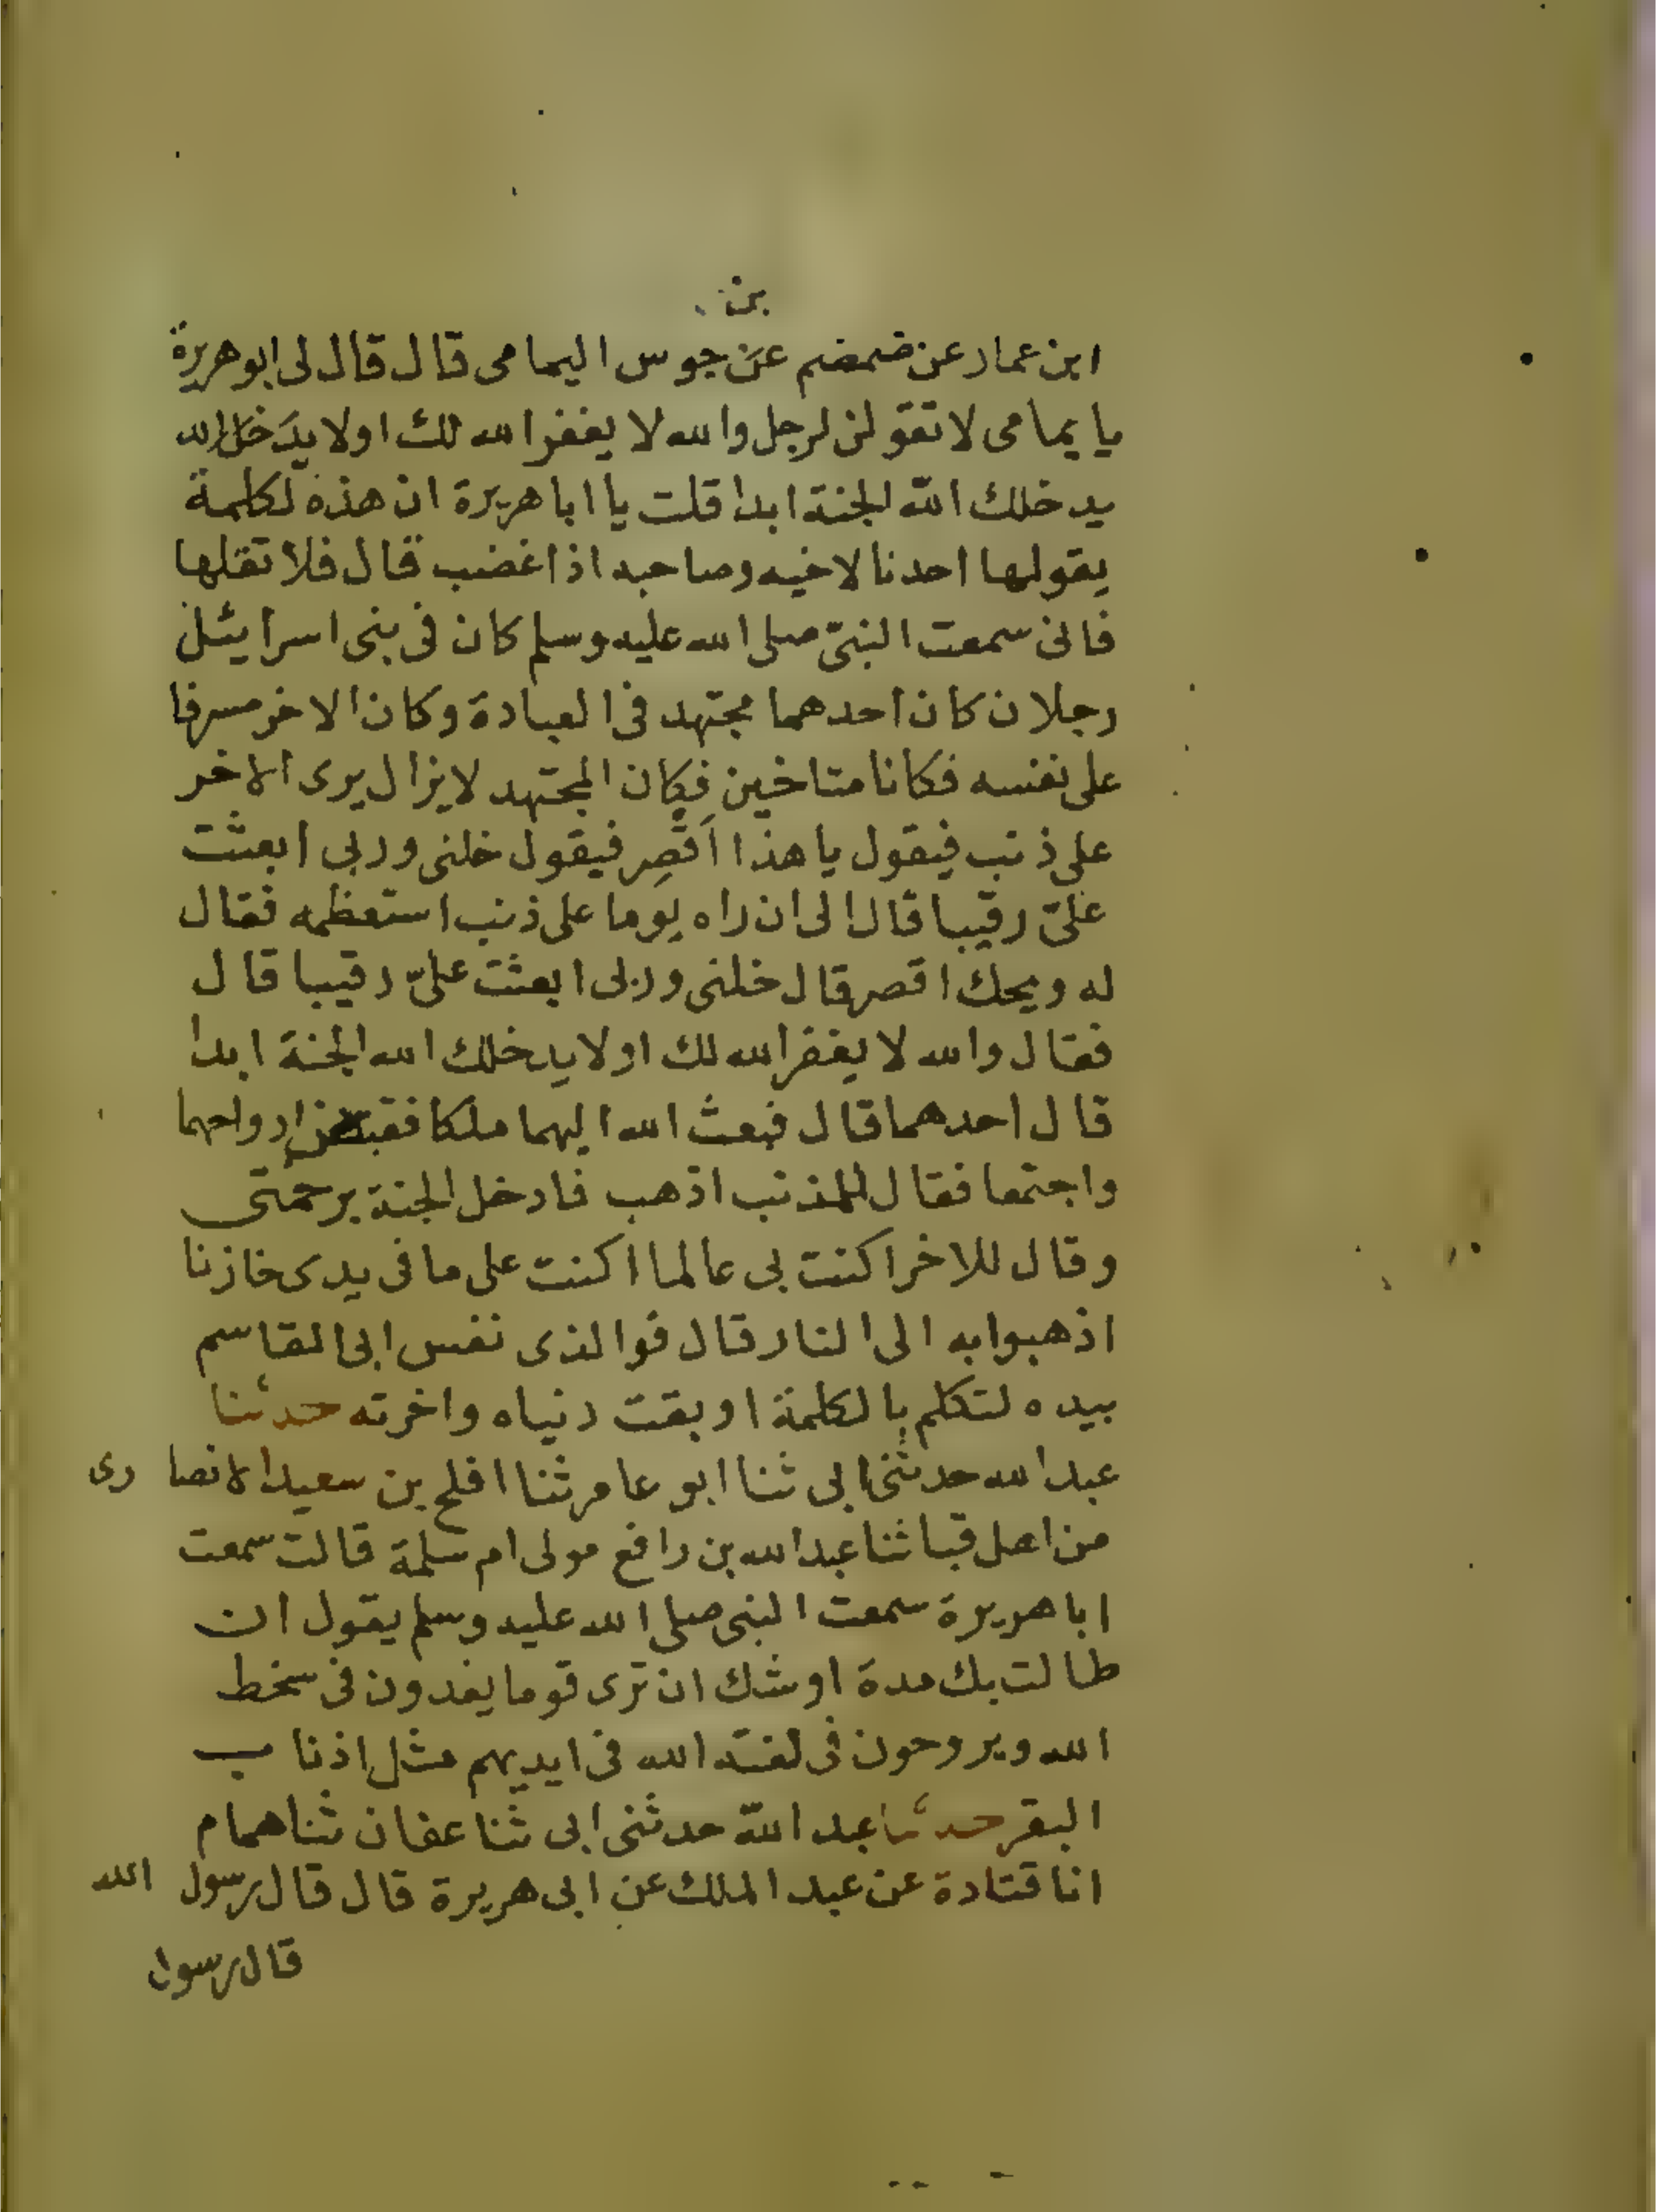 بن
ابن عمار عن ضمضم عن جوس اليمامى قال قال لى ابو هريرة
يا يمامى لا تقولن لرجل والله لا يغفر الله لك اولا يدخل الله
يدخلك الله الجنة ابدا قلت يا ابا هريرة ان هذه لكلمة
يقولها احدنا لاخيه وصاحبه اذا غضب قال فلا تقلها
فانى سمعت النبىّ صلى الله عليه وسلم كان فى بنى اسرايئل
رجلان كان احدهما مجتهد فى العبادة وكان الاخر مسرفا
على نفسه فكانا متاخين فكان المجتهد لا يزال يرى الاخر
على ذنب فيقول يا هذا اَقصِر فيقول خلنى وربى ابعثت
علىّ رقيبا قال الى ان راه يوما على ذنب استعظمه فقال
له ويحك اقصر قال خلنى وربى ابعثت علىّ رقيبا قال
فقال والله لا يغفر الله لك اولا يدخلك الله الجنة ابدا
قال احدهما قال فبعث الله اليهما ملكا فقبض ارواحهما
واجتمعا فقال للمذنب اذهب فادخل الجنة برحمتى
وقال للاخر اكنت بى عالما اكنت على ما فى يدى خازنا
اذهبوا به الى النار قال فوالذى نفس ابى القاسم
بيده لتكلم بالكلمة اوبقت دنياه واخرته حدثنا
عبد الله حدثنى ابى ثنا ابو عامر ثنا افلح بن سعيد الانصا رى
من اهل قبا ثنا عبد الله بن رافع مولى ام سلمة قالت سمعت
ابا هريرة سمعت النبى صلى الله عليه وسلم يقول ان
طالت بك مدة اوشك ان ترى قوما يغدون فى سخط
الله ويروحون فى لعنة الله فى ايديهم مثل اذناب
البقر حدثنا عبد الله حدثنى ابى ثنا عفان ثنا همام
انا قتادة عن عبد الملك عن ابى هريرة قال قال رسول الله
قال رسول